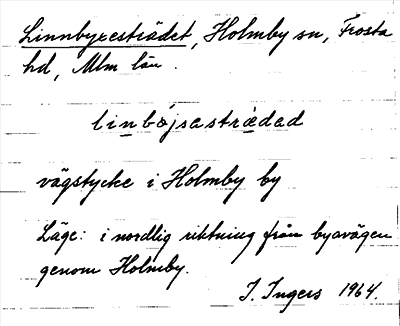 Linnbyresträdet, Holmby sn, Frosta
hd, Mlm län.
linbójsasträdad
vägstycke i Holmby by
Läge: i nordlig riktning från byavägen
genom Holmby.
I. Ingers 1964.